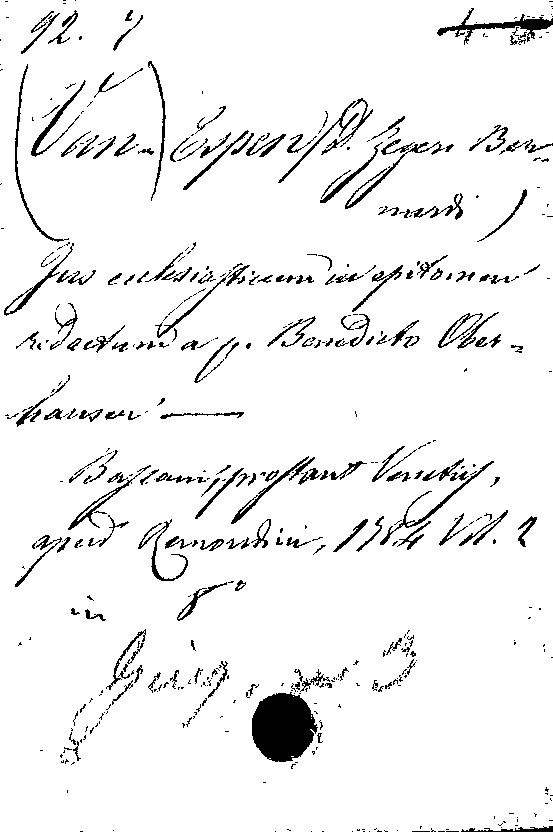 92. 7
(Van-) Espen (D. Zegeri Ber-
nardi)
Jus ecclesiasticum in epitomen
redactum a p. Benedicto Ober-
hauser —
Bassani, prostant Venetiis,
apud Remondini, 1784 Vol. 2
in 8°
3